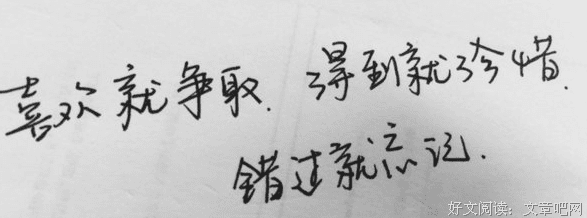 喜欢就争取.得到就珍惜.
错过就忘记.
好文阅读：文章吧网